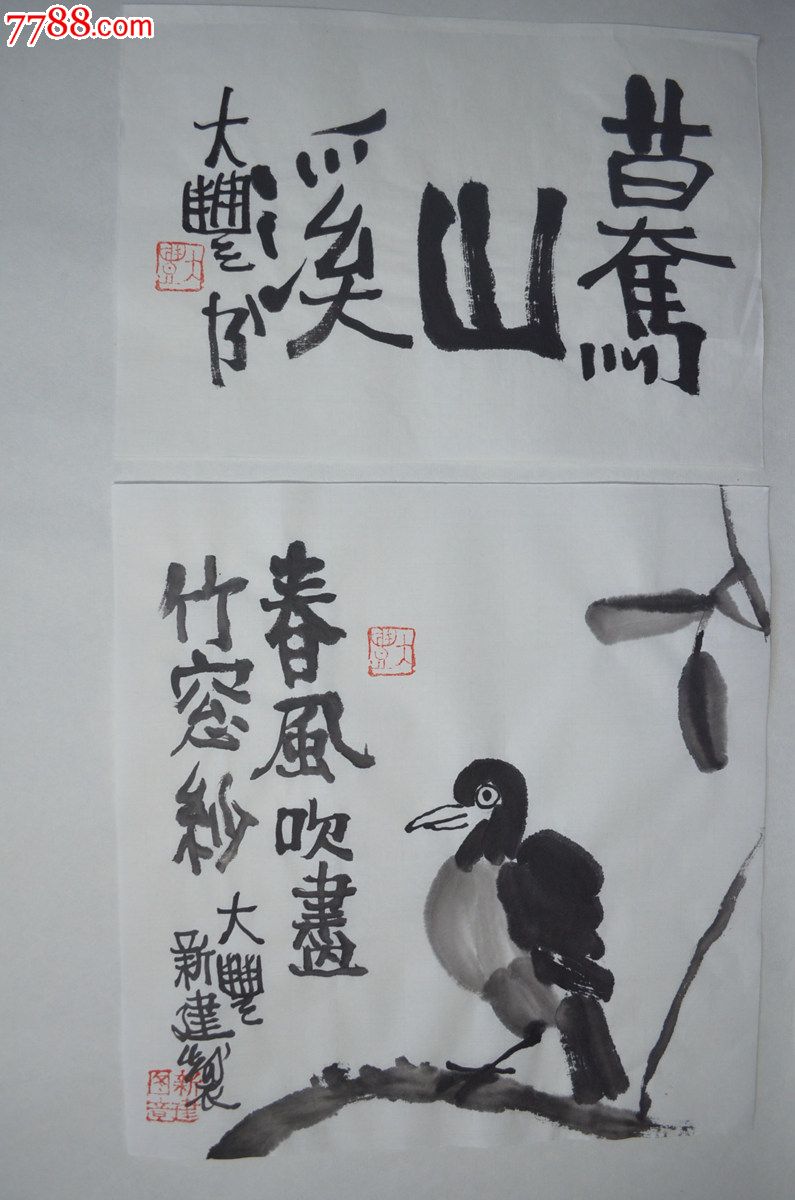 7788.com
驀山溪
大豐书
大豐
春風吹盡
竹窓紗
大豐
新建製
大豐
新建